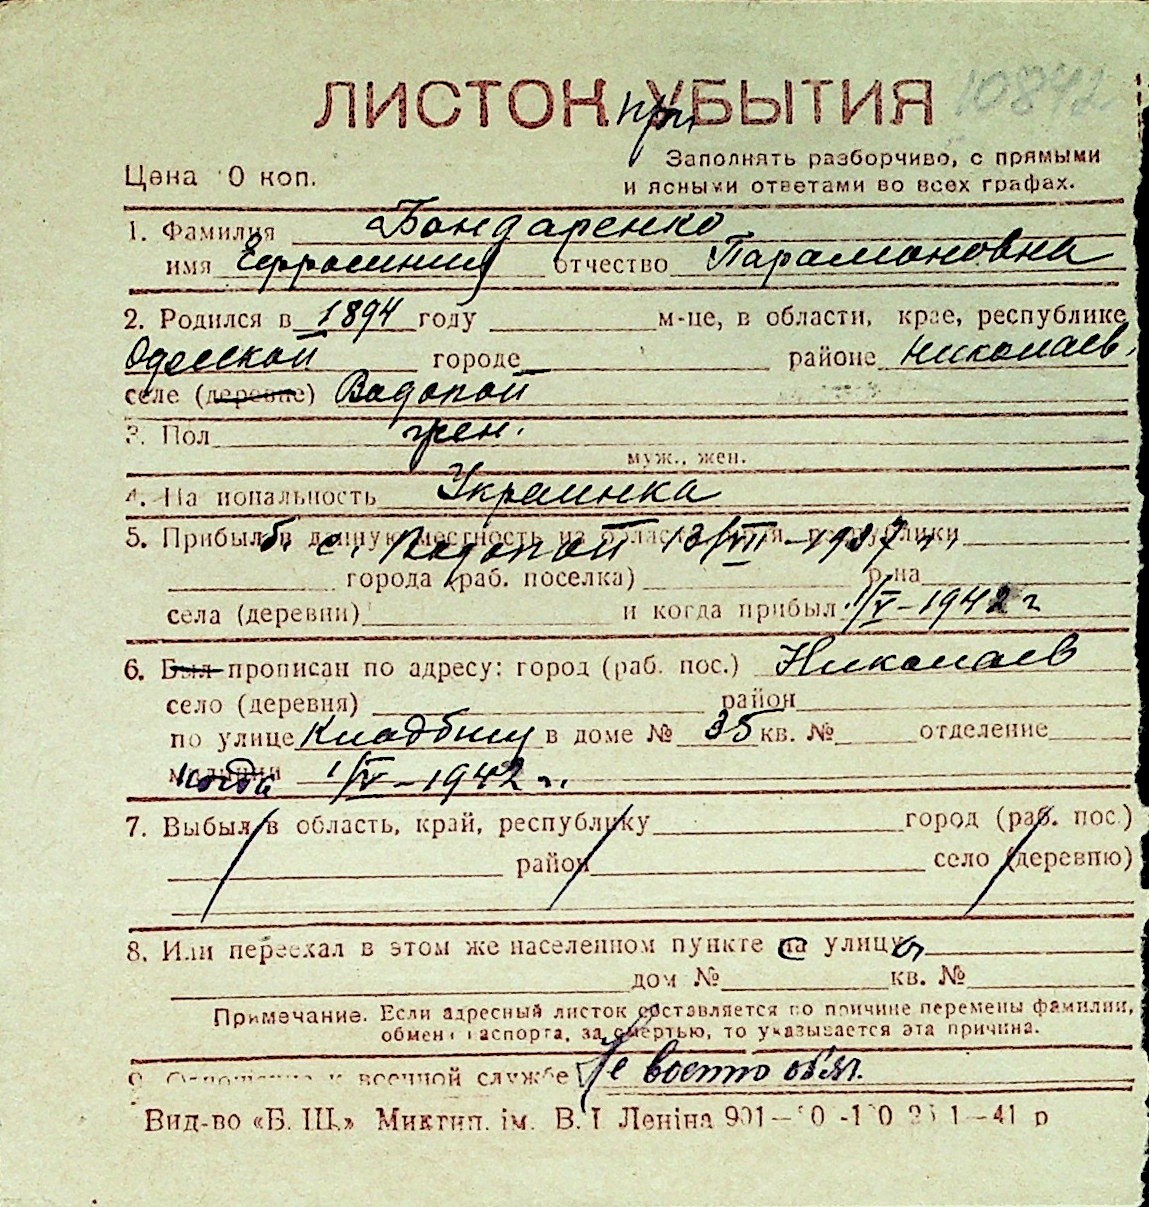 10842
ЛИСТОК при УБЫТИЯ
Цена 0 коп.
Заполнять разборчиво, с прямыми
и ясными ответами во всех графах.
1. Фамилия Бондаренко
имя Ефросиния отчество Парамоновна
2. Родился в 1894 году м-це, в области, крае, республике
Одесской городе районе Николаев.
селе (деревне) Водопой
3. Пол жен.
муж., жен.
4. На иональность Украинка
5. Прибыл в данную местность из области республики
с. Водопой 13/VII-1937 г.
города (раб. поселка) р-на
села (деревни) и когда прибыл 1/V-1942 г
6. Был прописан по адресу: город (раб. пос.) Николаев
село (деревня) район
по улице Кладбищ в доме № 35 кв. № отделение
милиции когда 1/IV-1942 г.
7. Выбыл в область, край, республику город (раб. пос.)
район село (деревню)
8. Или переехал в этом же населенном пункте на с улицу ы
дом № кв. №
Примечание. Если адресный листок составляется по причине перемены фамилии,
обмен паспорта, за смертью, то указывается эта причина.
9. Отношение к военной службе Не военно обяз.
Вид-во «Б. Щ.» Миктип. ім. В. І Леніна 901